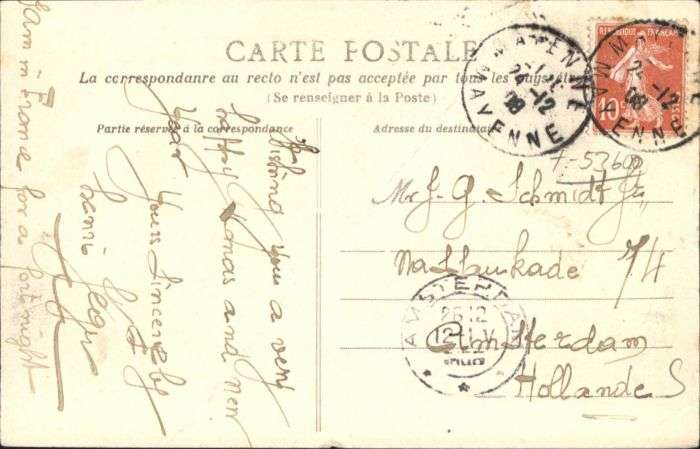 CARTE POSTALE
La correspondance au recto n'est pas acceptée par tous les pays étran
(Se renseigner à la Poste)
Partie réservée à la correspondance
Adresse du destinataire
REPUBLIQUE FRANÇAISE
10
MAYENNE
MAYENNE
12
08
MAYENNE
12
08
Wishing you a very
happy Xmas and New
Year
Yours Sincerely
I am in France for a fortnight
Mr J. G. Schmidt Jr
Nassaukade 74
Amsterdam
Hollande
AMSTERDAM
26 12
12-1 V